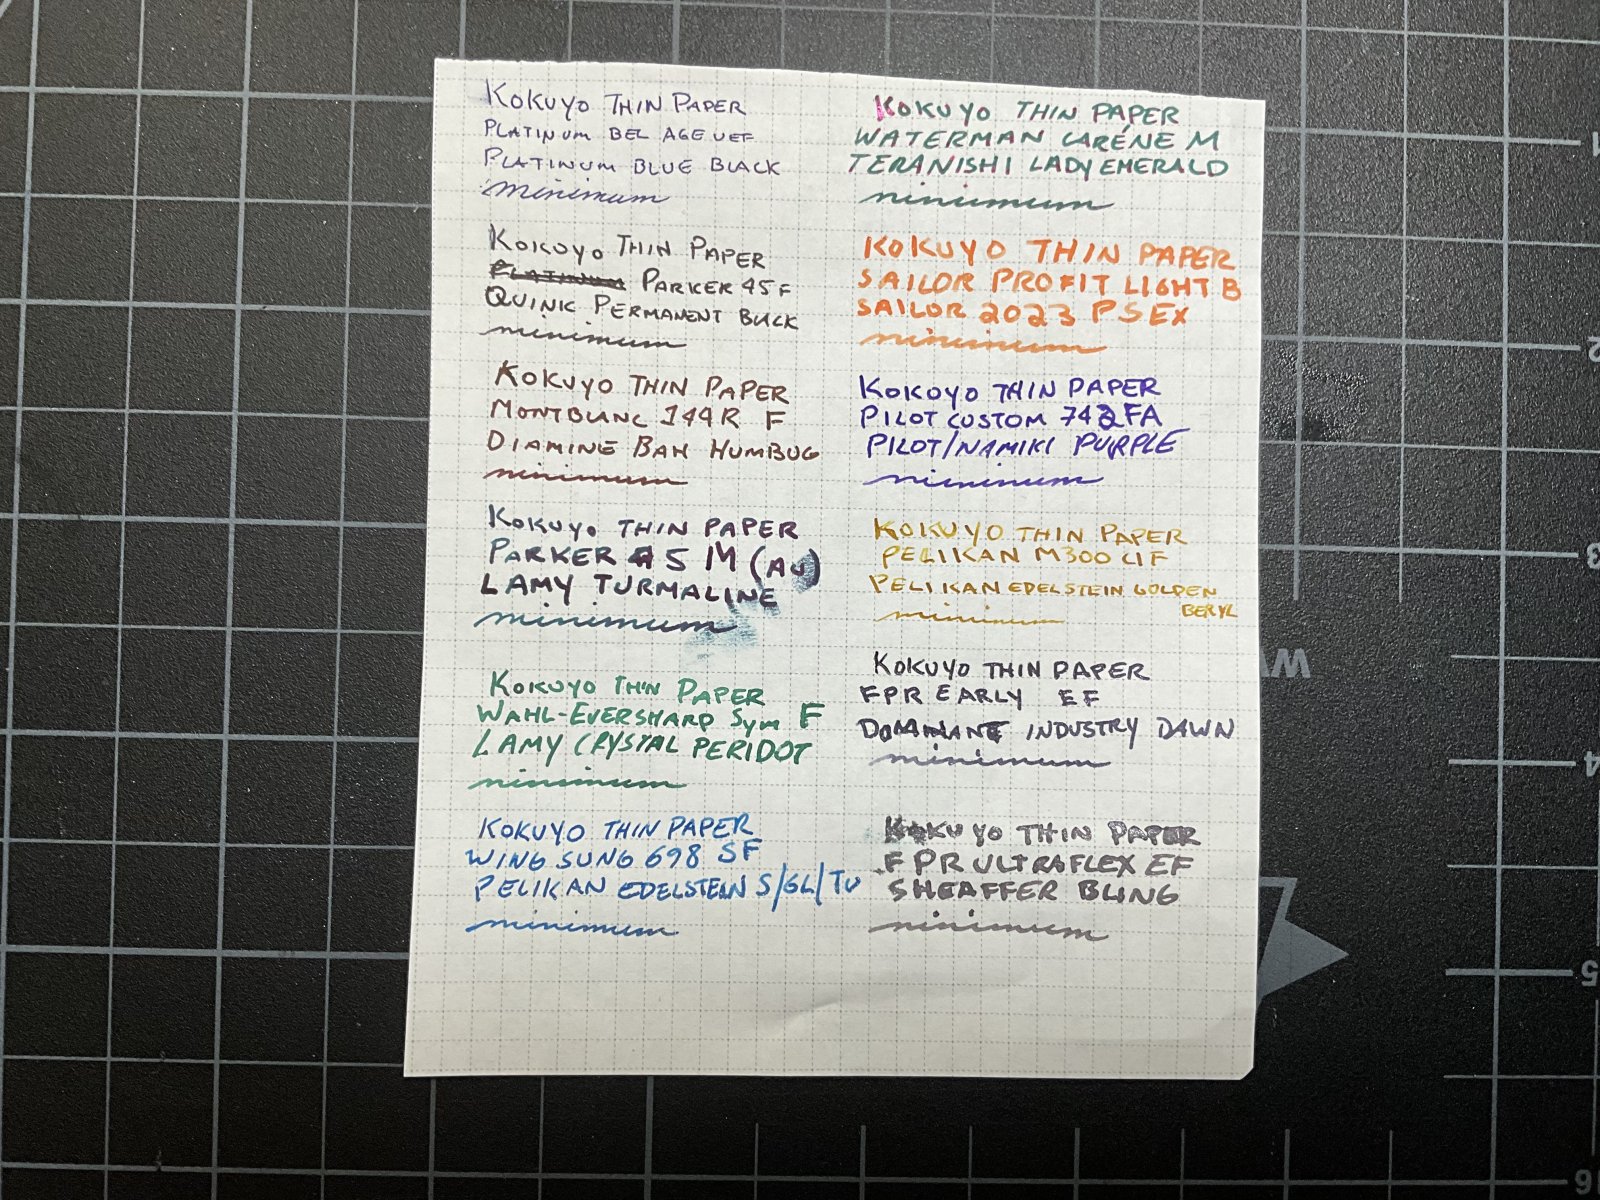 KOKUYO THIN PAPER
PLATINUM BEL AGE UEF
PLATINUM BLUE BLACK
minimum
KOKUYO THIN PAPER
PLATINUM PARKER 45 F
QUINK PERMANENT BLACK
minimum
KOKUYO THIN PAPER
MONTBLANC 144R F
DIAMINE BAH HUMBUG
minimum
KOKUYO THIN PAPER
PARKER 45 M (AU)
LAMY TURMALINE
minimum
KOKUYO THIN PAPER
WAHL-EVERSHARP SYM F
LAMY CRYSTAL PERIDOT
minimum
KOKUYO THIN PAPER
WING SUNG 698 SF
PELIKAN EDELSTEIN S/GL/TU
minimum
KOKUYO THIN PAPER
WATERMAN CARÉNE M
TERANISHI LADY EMERALD
minimum
KOKUYO THIN PAPER
SAILOR PROFIT LIGHT B
SAILOR 2023 PSEX
minimum
KOKOYO THIN PAPER
PILOT CUSTOM 742 FA
PILOT/NAMIKI PURPLE
minimum
KOKUYO THIN PAPER
PELIKAN M300 CIF
PELIKAN EDELSTEIN GOLDEN
BERYL
minimum
KOKUYO THIN PAPER
FPR EARLY EF
DOMINANT INDUSTRY DAWN
minimum
KOKUYO THIN PAPER
FPR ULTRAFLEX EF
SHEAFFER BLING
minimum
1
2
3
4
5
6